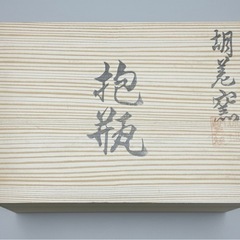 胡差窯
抱瓶